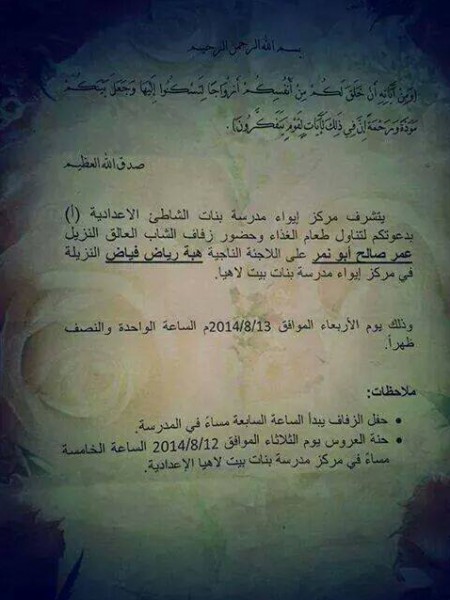 بسم الله الرحمن الرحيم
(وَمِنْ آيَاتِهِ أَنْ خَلَقَ لَكُمْ مِنْ أَنْفُسِكُمْ أَزْوَاجًا لِتَسْكُنُوا إِلَيْهَا وَجَعَلَ بَيْنَكُمْ
مَوَدَّةً وَرَحْمَةً إِنَّ فِي ذَلِكَ لَآيَاتٍ لِقَوْمٍ يَتَفَكَّرُونَ).
صدق الله العظيم
يتشرف مركز إيواء مدرسة بنات الشاطئ الاعدادية (أ)
بدعوتكم لتناول طعام الغذاء وحضور زفاف الشاب العالق النزيل
عمر صالح أبو نمر على اللاجئة الناجية هبة رياض فياض النزيلة
في مركز إيواء مدرسة بنات بيت لاهيا.
وذلك يوم الأربعاء الموافق 2014/8/13م الساعة الواحدة والنصف
ظهراً.
ملاحظات:
• حفل الزفاف يبدأ الساعة السابعة مساءً في المدرسة.
• حنة العروس يوم الثلاثاء الموافق 2014/8/12 الساعة الخامسة
مساءً في مركز مدرسة بنات بيت لاهيا الإعدادية.